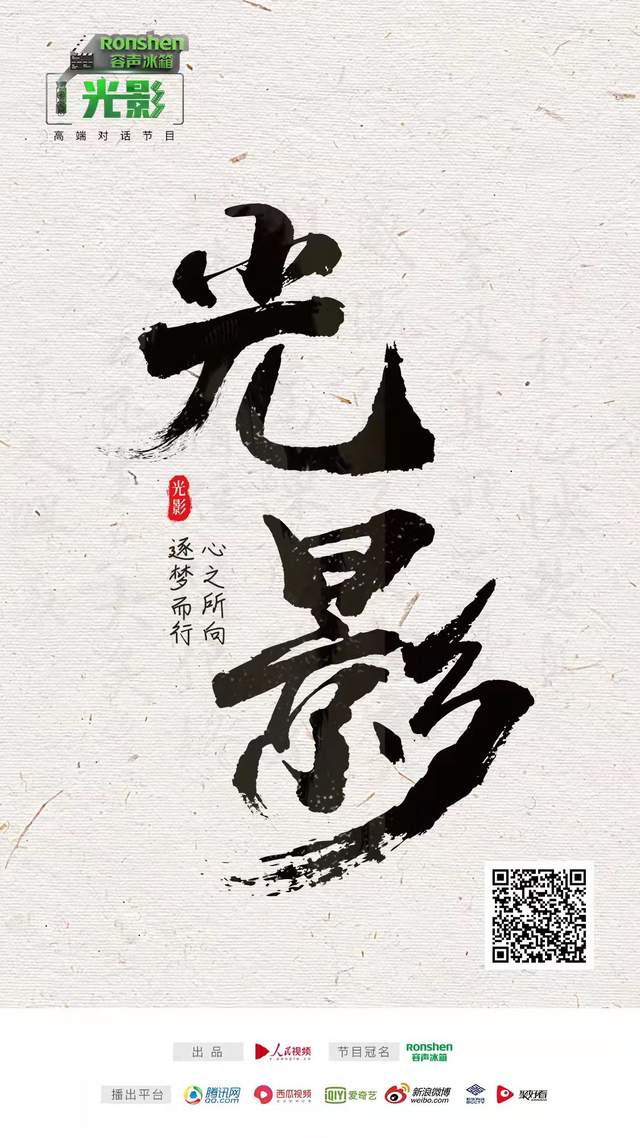 Ronshen
容声冰箱
光影
高端对话节目
光影
光影
心之所向
逐梦而行
出品
人民视频
v.people.cn
节目冠名
Ronshen
容声冰箱
播出平台
腾讯网
QQ.com
西瓜视频
iQIYI 爱奇艺
新浪微博
weibo.com
聚好看